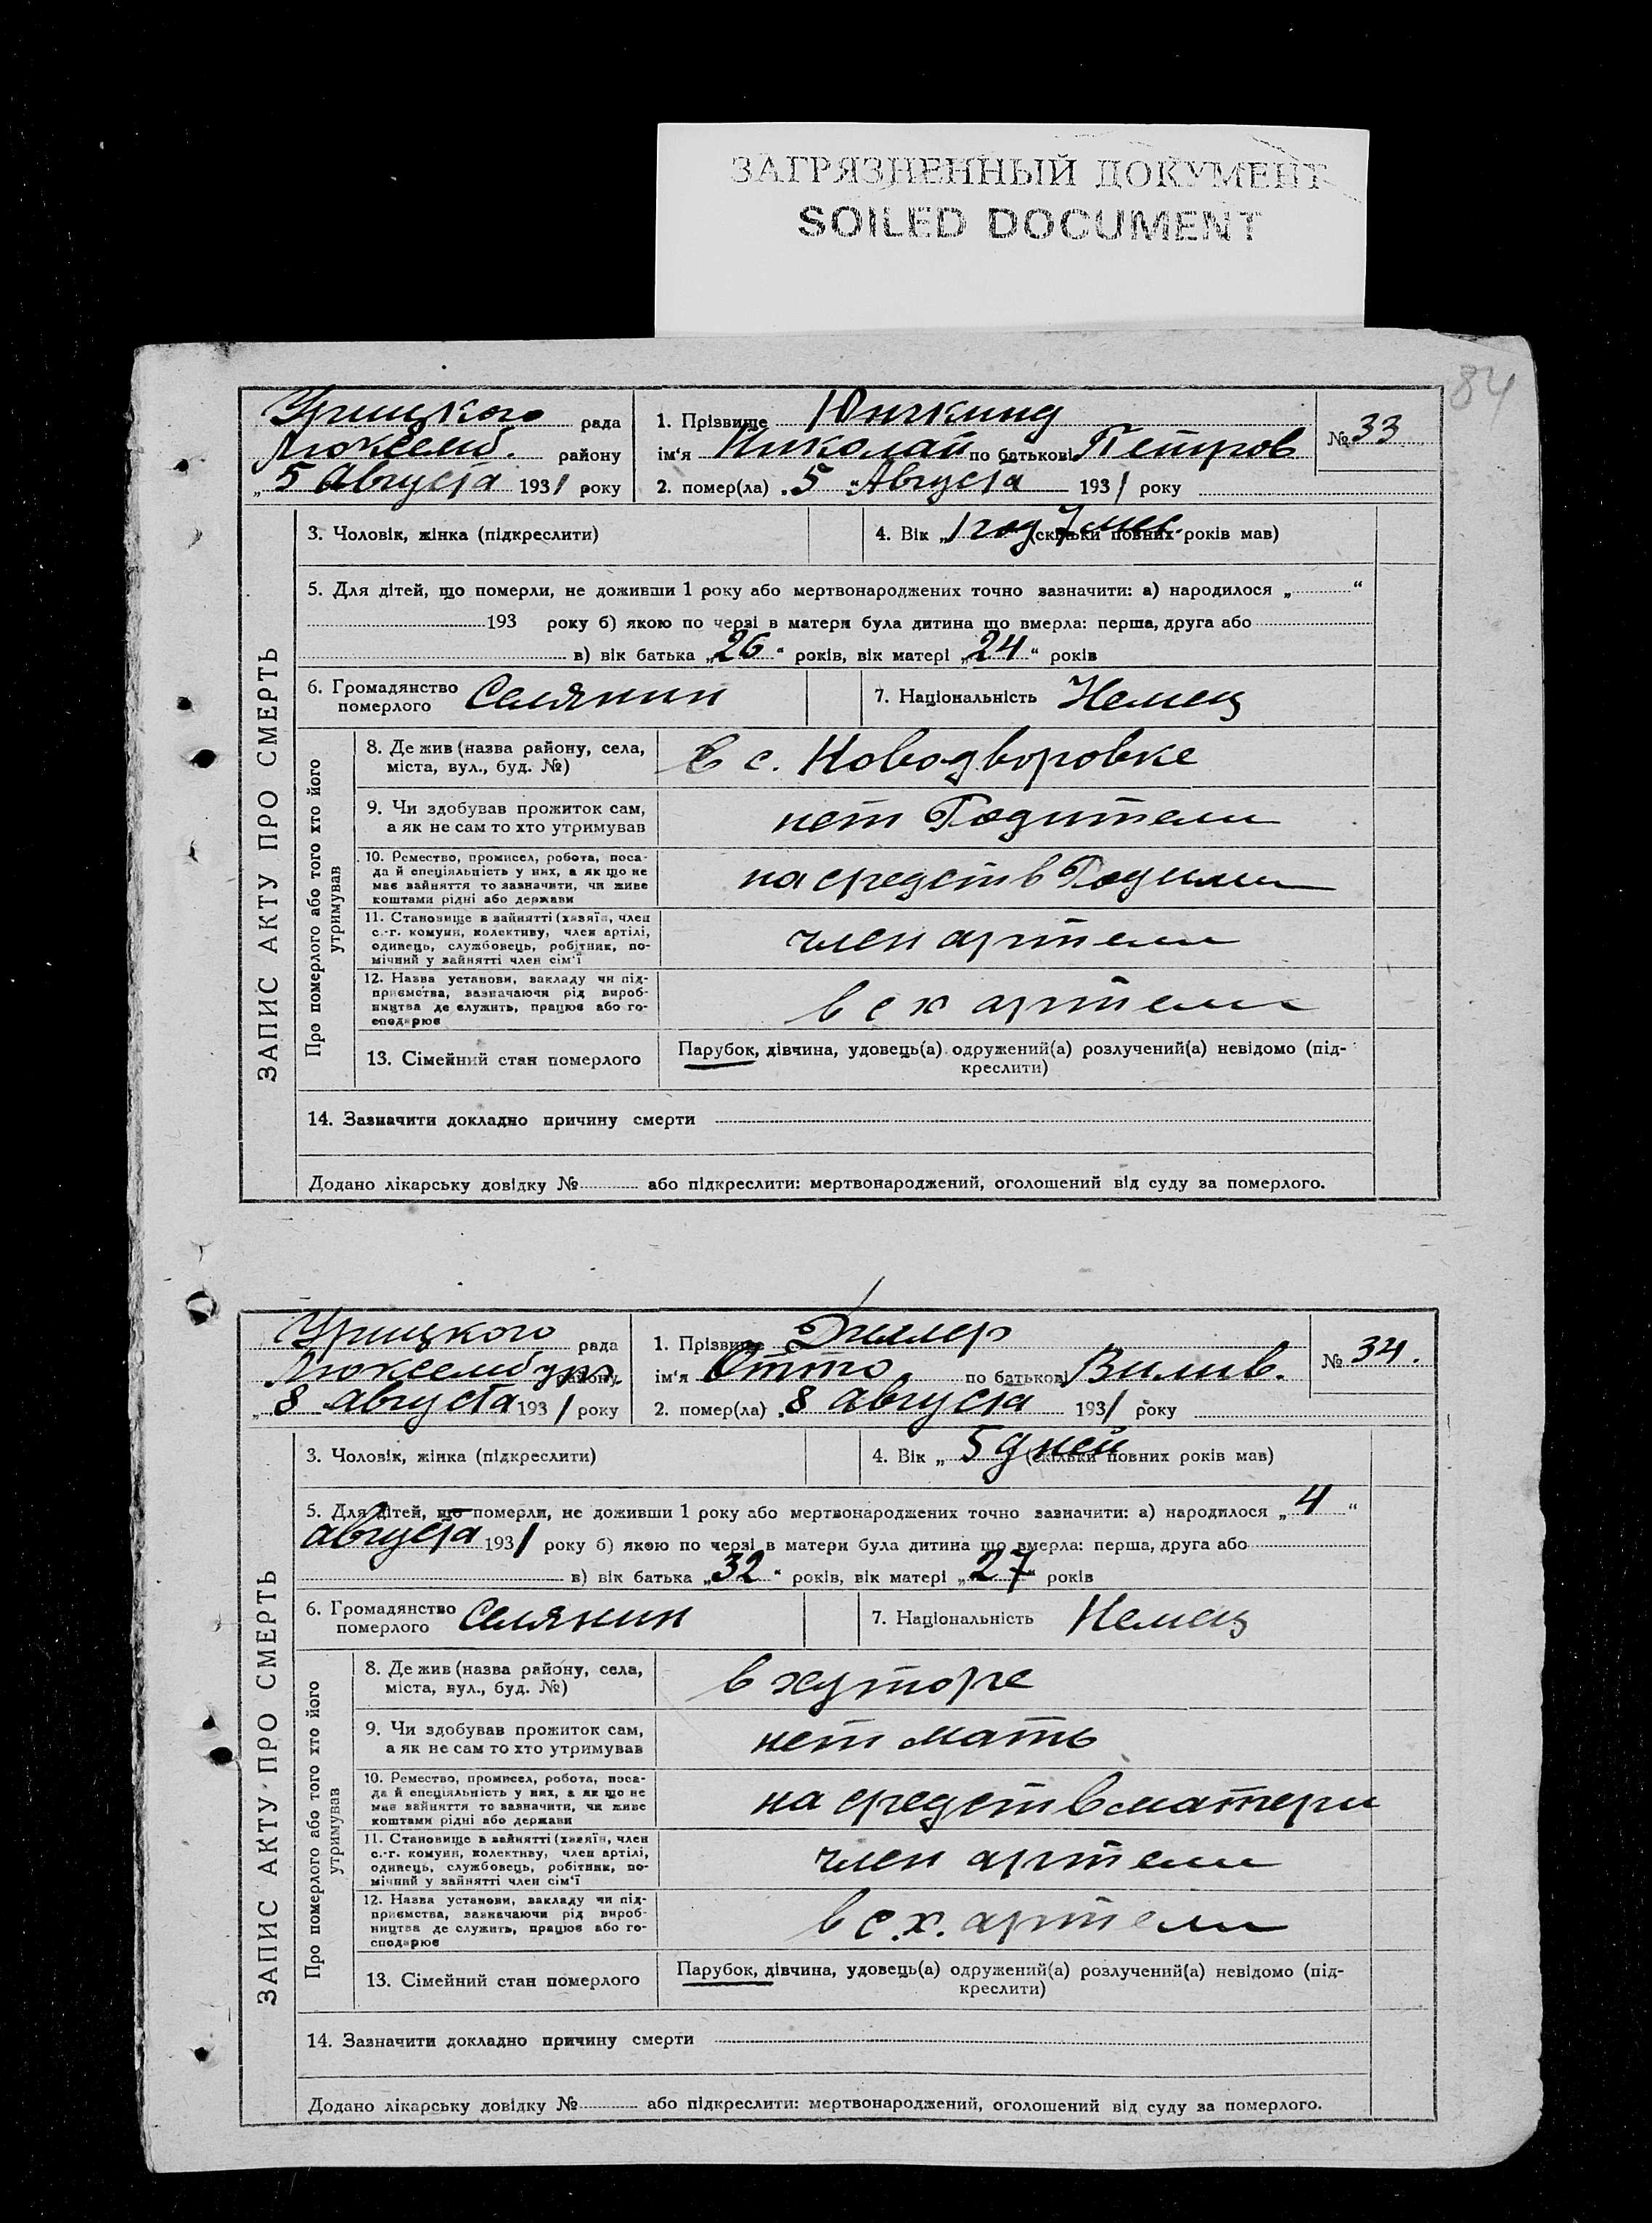 ЗАГРЯЗНЕННЫЙ ДОКУМЕНТ
SOILED DOCUMENT
84
Урицкого рада
Люксемб. району
„ 5 Августа 1931 року
1. Прізвище Юнкинд
ім‘я Николай по батькові Петров
2. помер(ла) „ 5 “ Августа 1931 року
№ 33
ЗАПИС АКТУ ПРО СМЕРТЬ
3. Чоловік, жінка (підкреслити)
4. Вік „ 1 год 7 мес. (скільки повних років мав)
5. Для дітей, що померли, не доживши 1 року або мертвонароджених точно зазначити: а) народилося „ “
193 року б) якою по черзі в матери була дитина що вмерла: перша, друга або
в) вік батька „ 26 “ років, вік матері „ 24 “ років
6. Громадянство померлого Селянин
7. Національність Немец
Про померлого або того хто його утримував
8. Де жив (назва району, села,
міста, вул., буд. №)
в с. Новодворовке
9. Чи здобував прожиток сам,
а як не сам то хто утримував
нет Родители
10. Ремество, промисел, робота, поса-
да й спеціяльність у них, а як що не
має зайняття то зазначити, чи живе
коштами рідні або держави
на средств Родители
11. Становище в зайнятті (хазяїн, член
с.-г. комуни, колективу, член артілі,
одинець, службовець, робітник, по-
мічний у зайнятті член сім‘ї
член артели
12. Назва установи, закладу чи під-
приємства, зазначаючи рід вироб-
ництва де служить, працює або го-
сподарює
в с х артели
13. Сімейний стан померлого
Парубок, дівчина, удовець(а) одружений(а) розлучений(а) невідомо (під-
креслити)
14. Зазначити докладно причину смерти
Додано лікарську довідку № або підкреслити: мертвонароджений, оголошений від суду за померлого.
Урицкого рада
Люксембург. району
„ 8 августа 1931 року
1. Прізвище Диллер
ім‘я Отто по батькові Вилив.
2. помер(ла) „ 8 августа 1931 року
№ 34.
ЗАПИС АКТУ ПРО СМЕРТЬ
3. Чоловік, жінка (підкреслити)
4. Вік „ 5 дней (скільки повних років мав)
5. Для дітей, що померли, не доживши 1 року або мертвонароджених точно зазначити: а) народилося „ 4 “
августа 1931 року б) якою по черзі в матери була дитина що вмерла: перша, друга або
в) вік батька „ 32 “ років, вік матері „ 27 “ років
6. Громадянство померлого Селянин
7. Національність Немец
Про померлого або того хто його утримував
8. Де жив (назва району, села,
міста, вул., буд. №)
в хуторе
9. Чи здобував прожиток сам,
а як не сам то хто утримував
нет мать
10. Ремество, промисел, робота, поса-
да й спеціяльність у них, а як що не
має зайняття то зазначити, чи живе
коштами рідні або держави
на средств матери
11. Становище в зайнятті (хазяїн, член
с.-г. комуни, колективу, член артілі,
одинець, службовець, робітник, по-
мічний у зайнятті член сім‘ї
член артели
12. Назва установи, закладу чи під-
приємства, зазначаючи рід вироб-
ництва де служить, працює або го-
сподарює
в с.х. артели
13. Сімейний стан померлого
Парубок, дівчина, удовець(а) одружений(а) розлучений(а) невідомо (під-
креслити)
14. Зазначити докладно причину смерти
Додано лікарську довідку № або підкреслити: мертвонароджений, оголошений від суду за померлого.